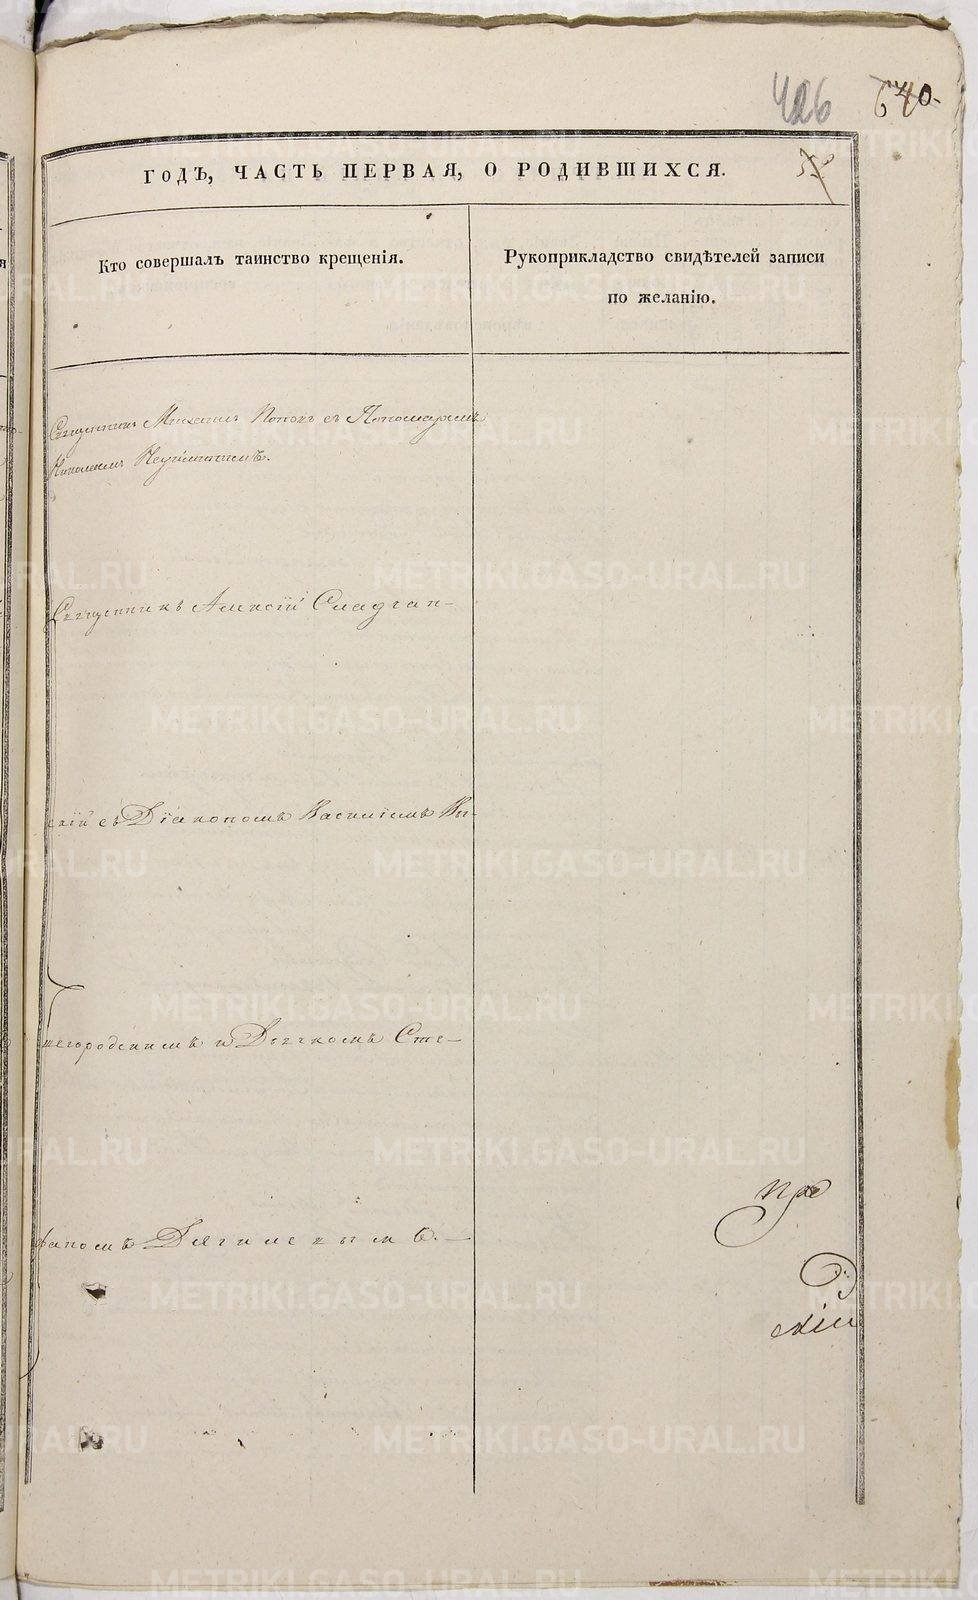 426 640.
ГОДЪ, ЧАСТЬ ПЕРВАЯ, О РОДИВШИХСЯ.
Кто совершалъ таинство крещенія.
Рукоприкладство свидѣтелей записи
по желанію.
Священникъ Михаилъ Поповъ съ Пономаремъ
Николаемъ
Священникъ Алексій Сладган-
скій съ Діакономъ Василіемъ Ни-
жегородскимъ и Дьячкомъ Сте-
фаномъ Дягилевымъ.
METRIKI.GASO-URAL.RU